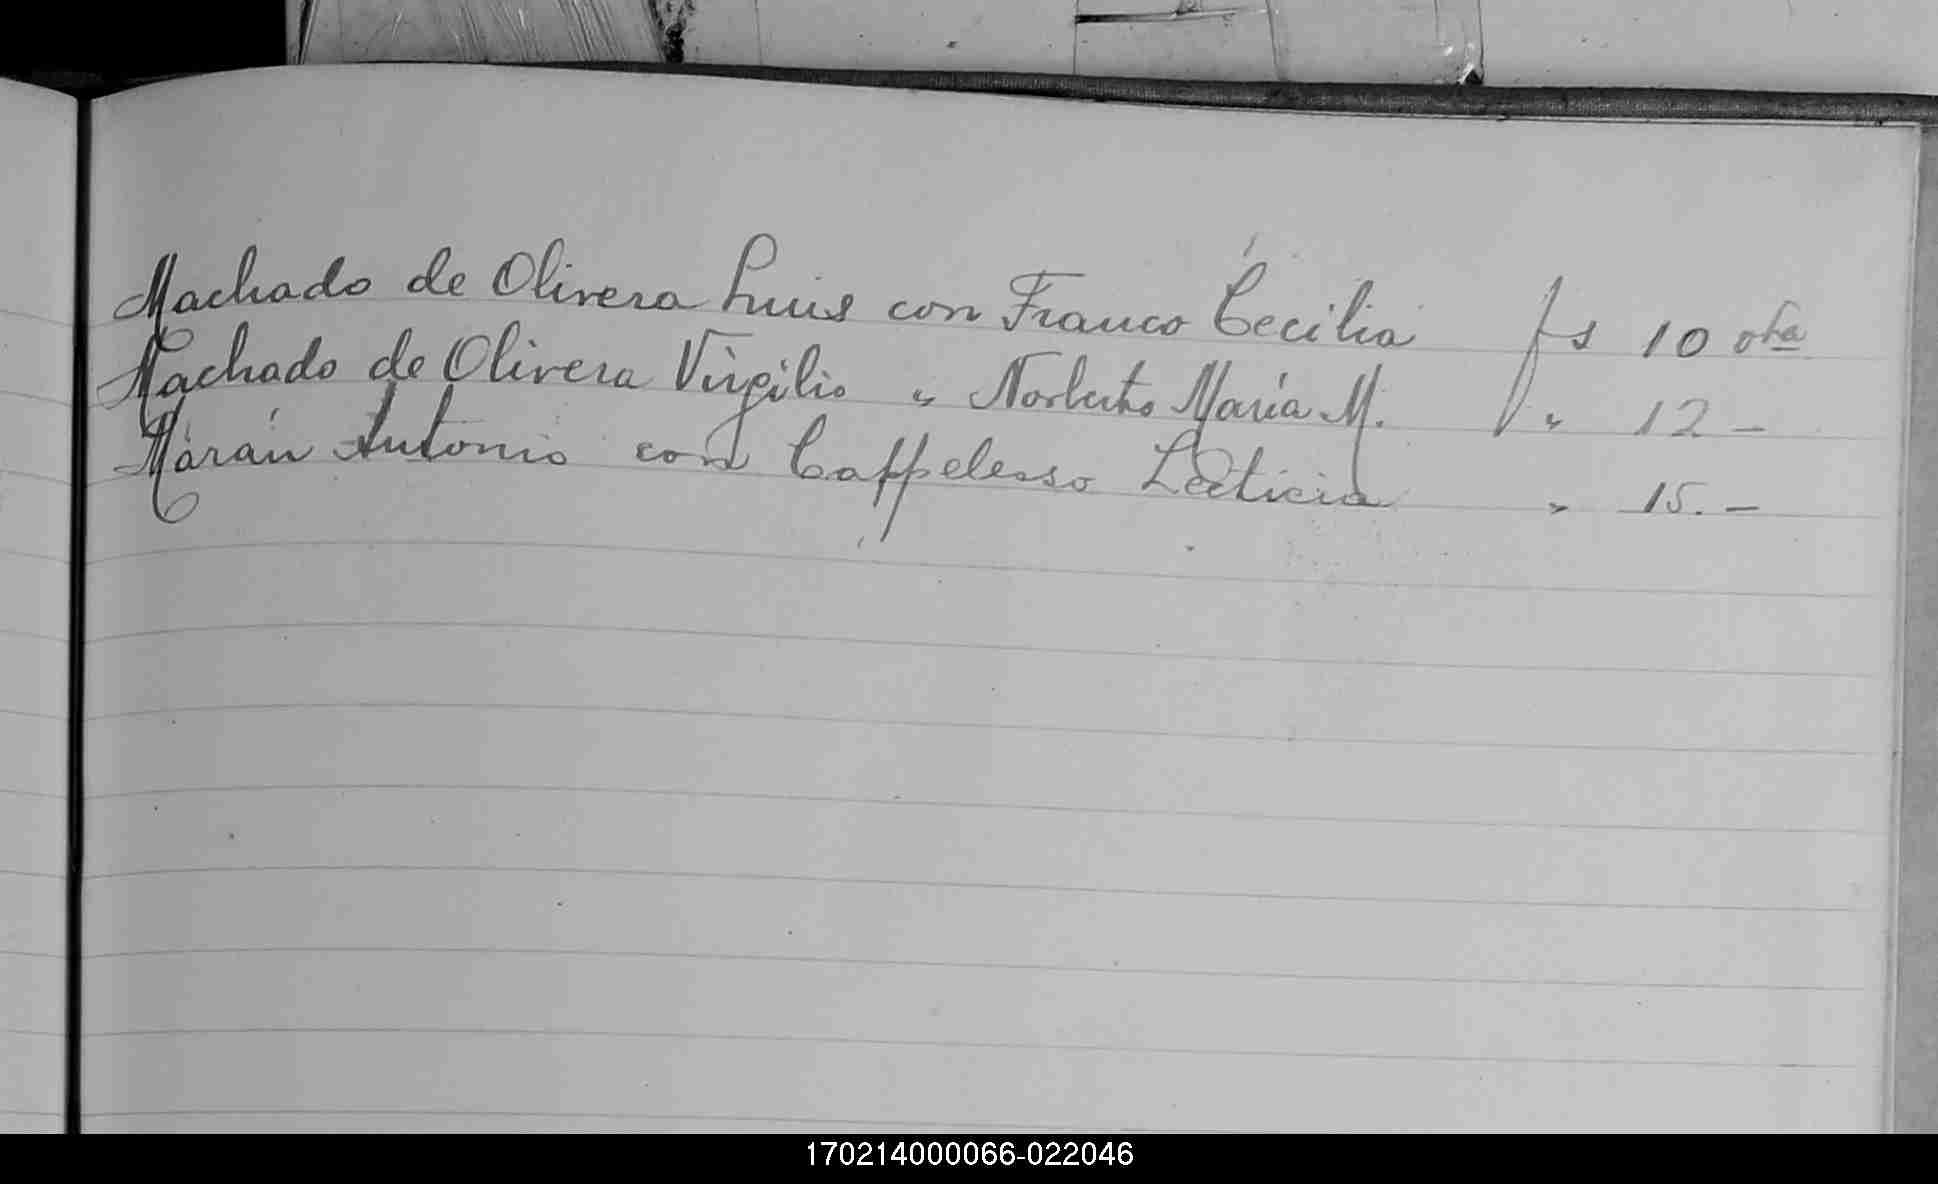 Machado de Olivera Luis con Franco Cecilia fs 10 vta
Machado de Olivera Virgilio " Norberto María M. " 12 -
Marán Antonio con Cappelesso Leticia " 15. -
170214000066-022046